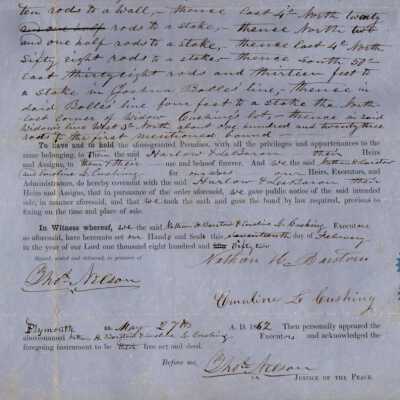 ten rods to a wall, – thence East 4° North twenty
and one half rods to a stake, – thence North two
and one half rods to a stake, thence East 4° North
Sixty eight rods to a stake thence South 50°
East thirty eight rods and thirteen feet to
a stake in Joshua Balles' line, thence in
said Balles' line four feet to a stake the North
East corner of Widow Cushing's lot, – thence in said
Widow's line West North about one hundred and twenty three
rods to the first mentioned bound
To have and to hold the aforegranted Premises, with all the privileges and appurtenances to
the same belonging, to them the said Harlow & their Heirs
and Assigns, to their use and behoof forever. And we the said Nathan H Barstow
and Emeline L. Cushing for our Heirs, Executors, and
Administrators, do hereby covenant with the said Harlow & their
Heirs and Assigns, that in pursuance of the order aforesaid, we gave public notice of the said intended
sale, in manner aforesaid, and that we took the oath and gave the bond by law required, previous to
fixing on the time and place of sale.
In Witness whereof, we the said Nathan H Barstow & Emeline L. Cushing Executors
as aforesaid, have hereunto set our Hands and Seals this seventeenth day of February
in the year of our Lord one thousand eight hundred and fifty two
Signed, sealed and delivered, in presence of
Nathan H Barstow
Thos. Nelson
Emeline L Cushing
Plymouth ss. May 27th A. D. 1862 Then personally appeared the
abovenamed Nathan H. Barstow & Emeline L. Cushing Executors and acknowledged the
foregoing instrument to be their free act and deed.
Before me,
Thos. Nelson
Justice of the Peace.